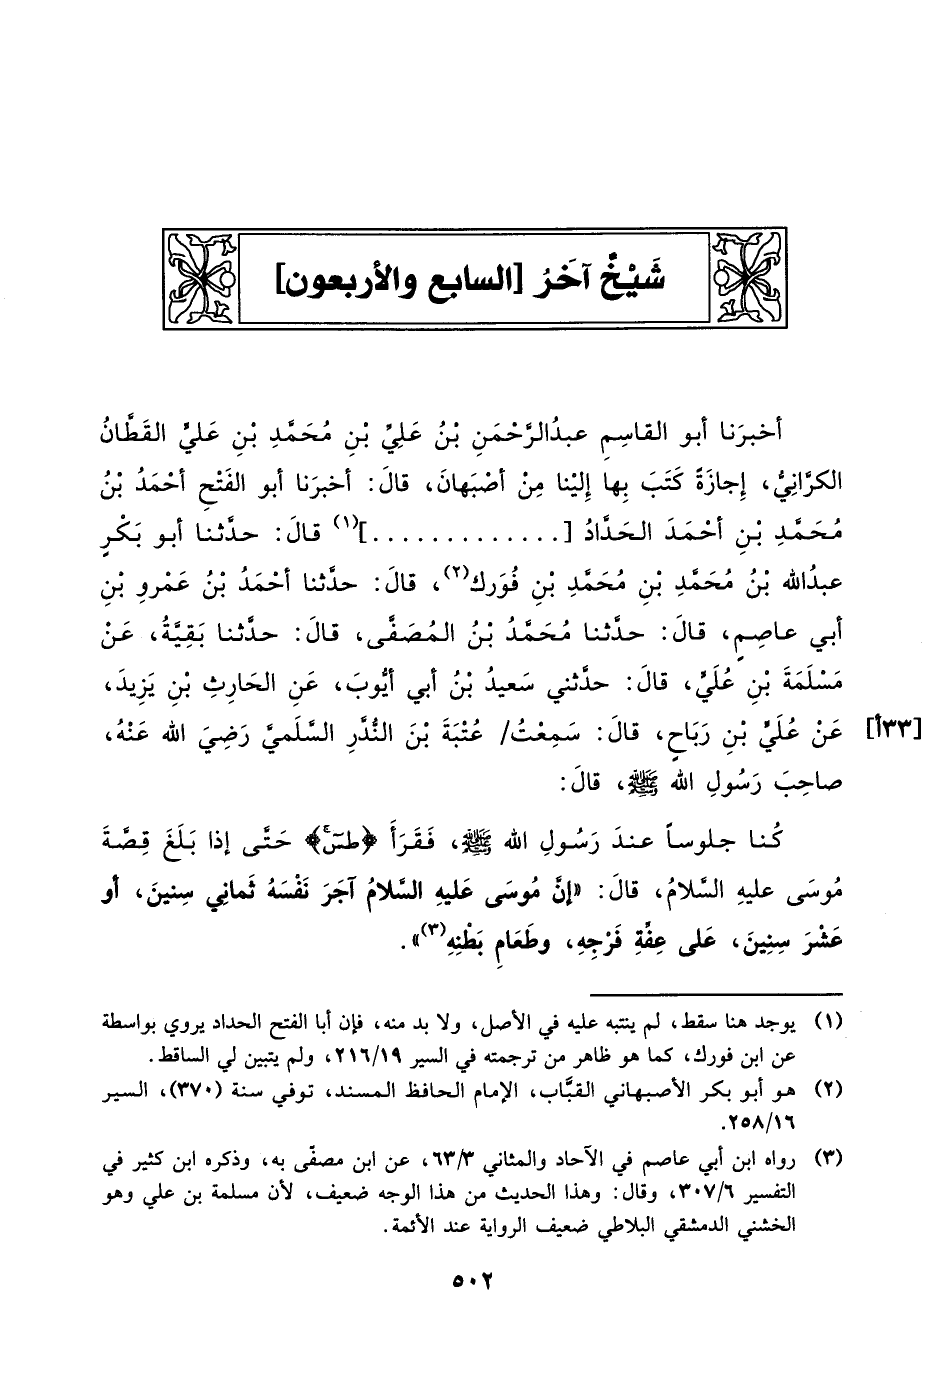 شَيْخٌ آخَرُ [السابع والأربعون]
أخبرَنا أبو القاسِمِ عبدُالرَّحْمَنِ بْنُ عَلِيِّ بْنِ مُحَمَّدِ بْنِ عَليٍّ القَطَّانُ
الكرَّانِيُّ، إجازَةً كَتَبَ بِها إلَيْنا مِنْ أصْبَهانَ، قالَ: أخبرَنا أبو الفَتْحِ أحْمَدُ بْنُ
مُحَمَّدِ بْنِ أحْمَدَ الحَدَّادُ [.............](١) قالَ: حدَّثنا أبو بَكْرٍ
عبدُالله بْنُ مُحَمَّدِ بْنِ مُحَمَّدِ بْنِ فُورَك(٢)، قالَ: حدَّثنا أحْمَدُ بْنُ عَمْرِو بْنِ
أبي عاصِمٍ، قالَ: حدَّثنا مُحَمَّدُ بْنُ المُصَفَّى، قالَ: حدَّثنا بَقِيَّةُ، عَنْ
مَسْلَمَةَ بْنِ عُلَيٍّ، قالَ: حدَّثني سَعيدُ بْنُ أبي أيُّوبَ، عَنِ الحَارِثِ بْنِ يَزِيدَ،
عَنْ عُلَيِّ بْنِ رَبَاحٍ، قالَ: سَمِعْتُ/ عُتْبَةَ بْنَ النُّدَّرِ السَّلَميَّ رَضِيَ الله عَنْهُ، [٣٣أ]
صاحِبَ رَسُولِ الله ﷺ، قالَ:
كُنا جلوساً عندَ رَسُولِ الله ﷺ، فَقَرَأَ ﴿طسٓۚ﴾ حَتَّى إذا بَلَغَ قِصَّةَ
مُوسَى عليهِ السَّلامُ، قالَ: «إنَّ مُوسَى عَليهِ السَّلامُ آجَرَ نَفْسَهُ ثَماني سِنينَ، أو
عَشْرَ سِنِينَ، عَلى عِفَّةِ فَرْجِهِ، وطَعَامِ بَطْنِهِ(٣)».
(١) يوجد هنا سقط، لم ينتبه عليه في الأصل، ولا بد منه، فإن أبا الفتح الحداد يروي بواسطة
عن ابن فورك، كما هو ظاهر من ترجمته في السير ٢١٦/١٩، ولم يتبين لي الساقط.
(٢) هو أبو بكر الأصبهاني القبَّاب، الإمام الحافظ المسند، توفي سنة (٣٧٠)، السير
٢٥٨/١٦.
(٣) رواه ابن أبي عاصم في الآحاد والمثاني ٦٣/٣، عن ابن مصفّى به، وذكره ابن كثير في
التفسير ٣٠٧/٦، وقال: وهذا الحديث من هذا الوجه ضعيف، لأن مسلمة بن علي وهو
الخشني الدمشقي البلاطي ضعيف الرواية عند الأئمة.
٥٠٢